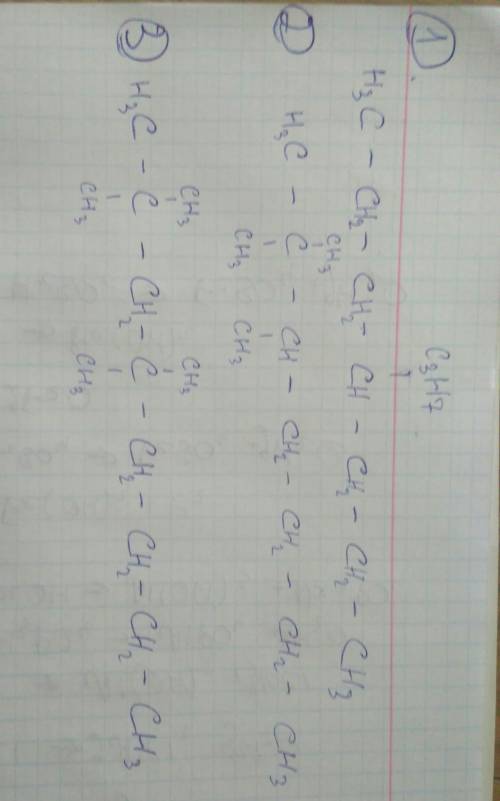 ①
C₃H₇
H₃C – CH₂ – CH₂ – CH – CH₂ – CH₂ – CH₃
②
CH₃
H₃C – C – CH – CH₂ – CH₂ – CH₂ – CH₃
CH₃ CH₃
③
CH₃ CH₃
H₃C – C – CH₂ – C – CH₂ – CH₂ – CH₂ – CH₃
CH₃ CH₃